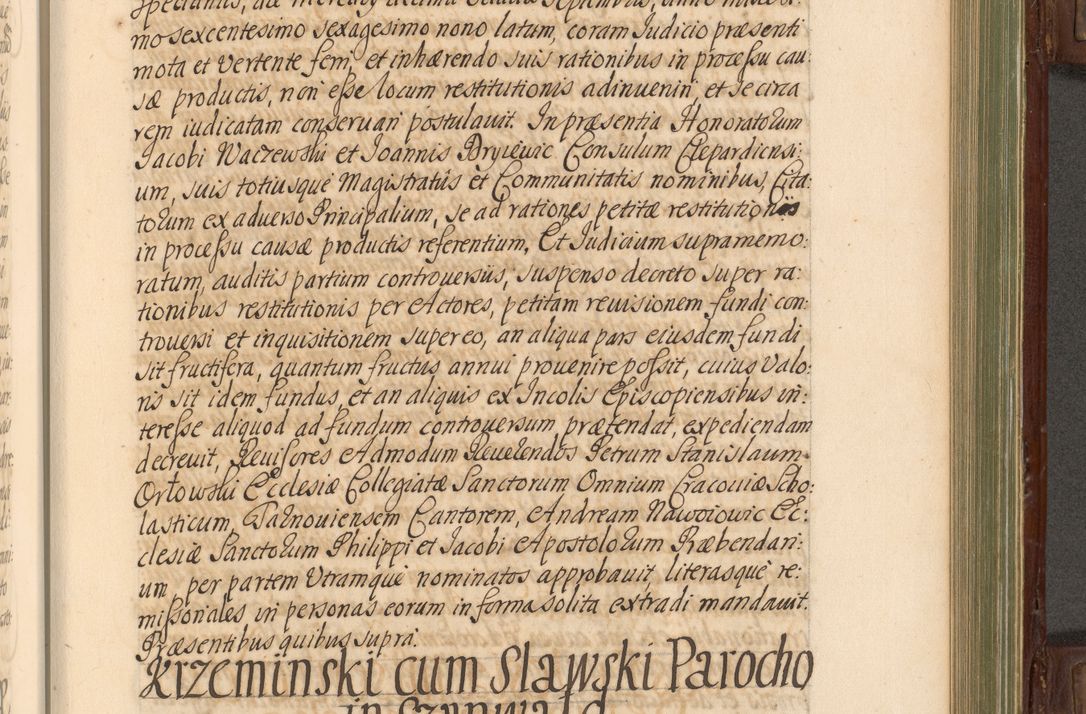 specialius, die Mercurij decima octaua Septembris, anno mille:
mo sexcentesimo sexagesimo nono latum, coram Iudicio præsenti
mota et vertente ferri, et inhærendo suis rationibus in processu cau:
sæ productis, non esse locum restitutionis adinueniri, et se circa
rem iudicatam conseruari postulauit. In præsentia Honoratorum
Jacobi Waczewski et Joannis Bryiewic Consulum Clepardiensi:
um, suis totiusque Magistratûs et Communitatis nominibus, Cita:
torum ex aduerso Principalium, se ad rationes petitæ restitutionis
in processu causæ productis referentium, Et Iudicium supramemo:
ratum, auditis partium controuersiis, suspenso decreto super ra:
tionibus restitutionis per Actores, petitam reuisionem fundi con:
trouersi et inquisitionem super eo, an aliqua pars eiusdem fundi
sit fructifera, quantum fructus annui prouenire possit, cuius valo:
ris sit idem fundus, et an aliquis ex Incolis Episcopiensibus in:
teresse aliquod ad fundum controuersum prætendat, expediendam
decreuit, Reuisores Admodum Reuerendos Petrum Stanislaum
Orłowski Ecclesiæ Collegiatæ Sanctorum Omnium Cracouiæ Scho:
lasticum, Tarnouiensem Cantorem, Andream Nawoiowic Ec:
clesiæ Sanctorum Philippi et Jacobi Apostolorum Præbendari:
um per partem utramque nominatos approbauit, literasque re:
missoriales in personas eorum in forma solita extradi mandauit.
Præsentibus quibus supra.
Krzeminski cum Slawski Parocho
in